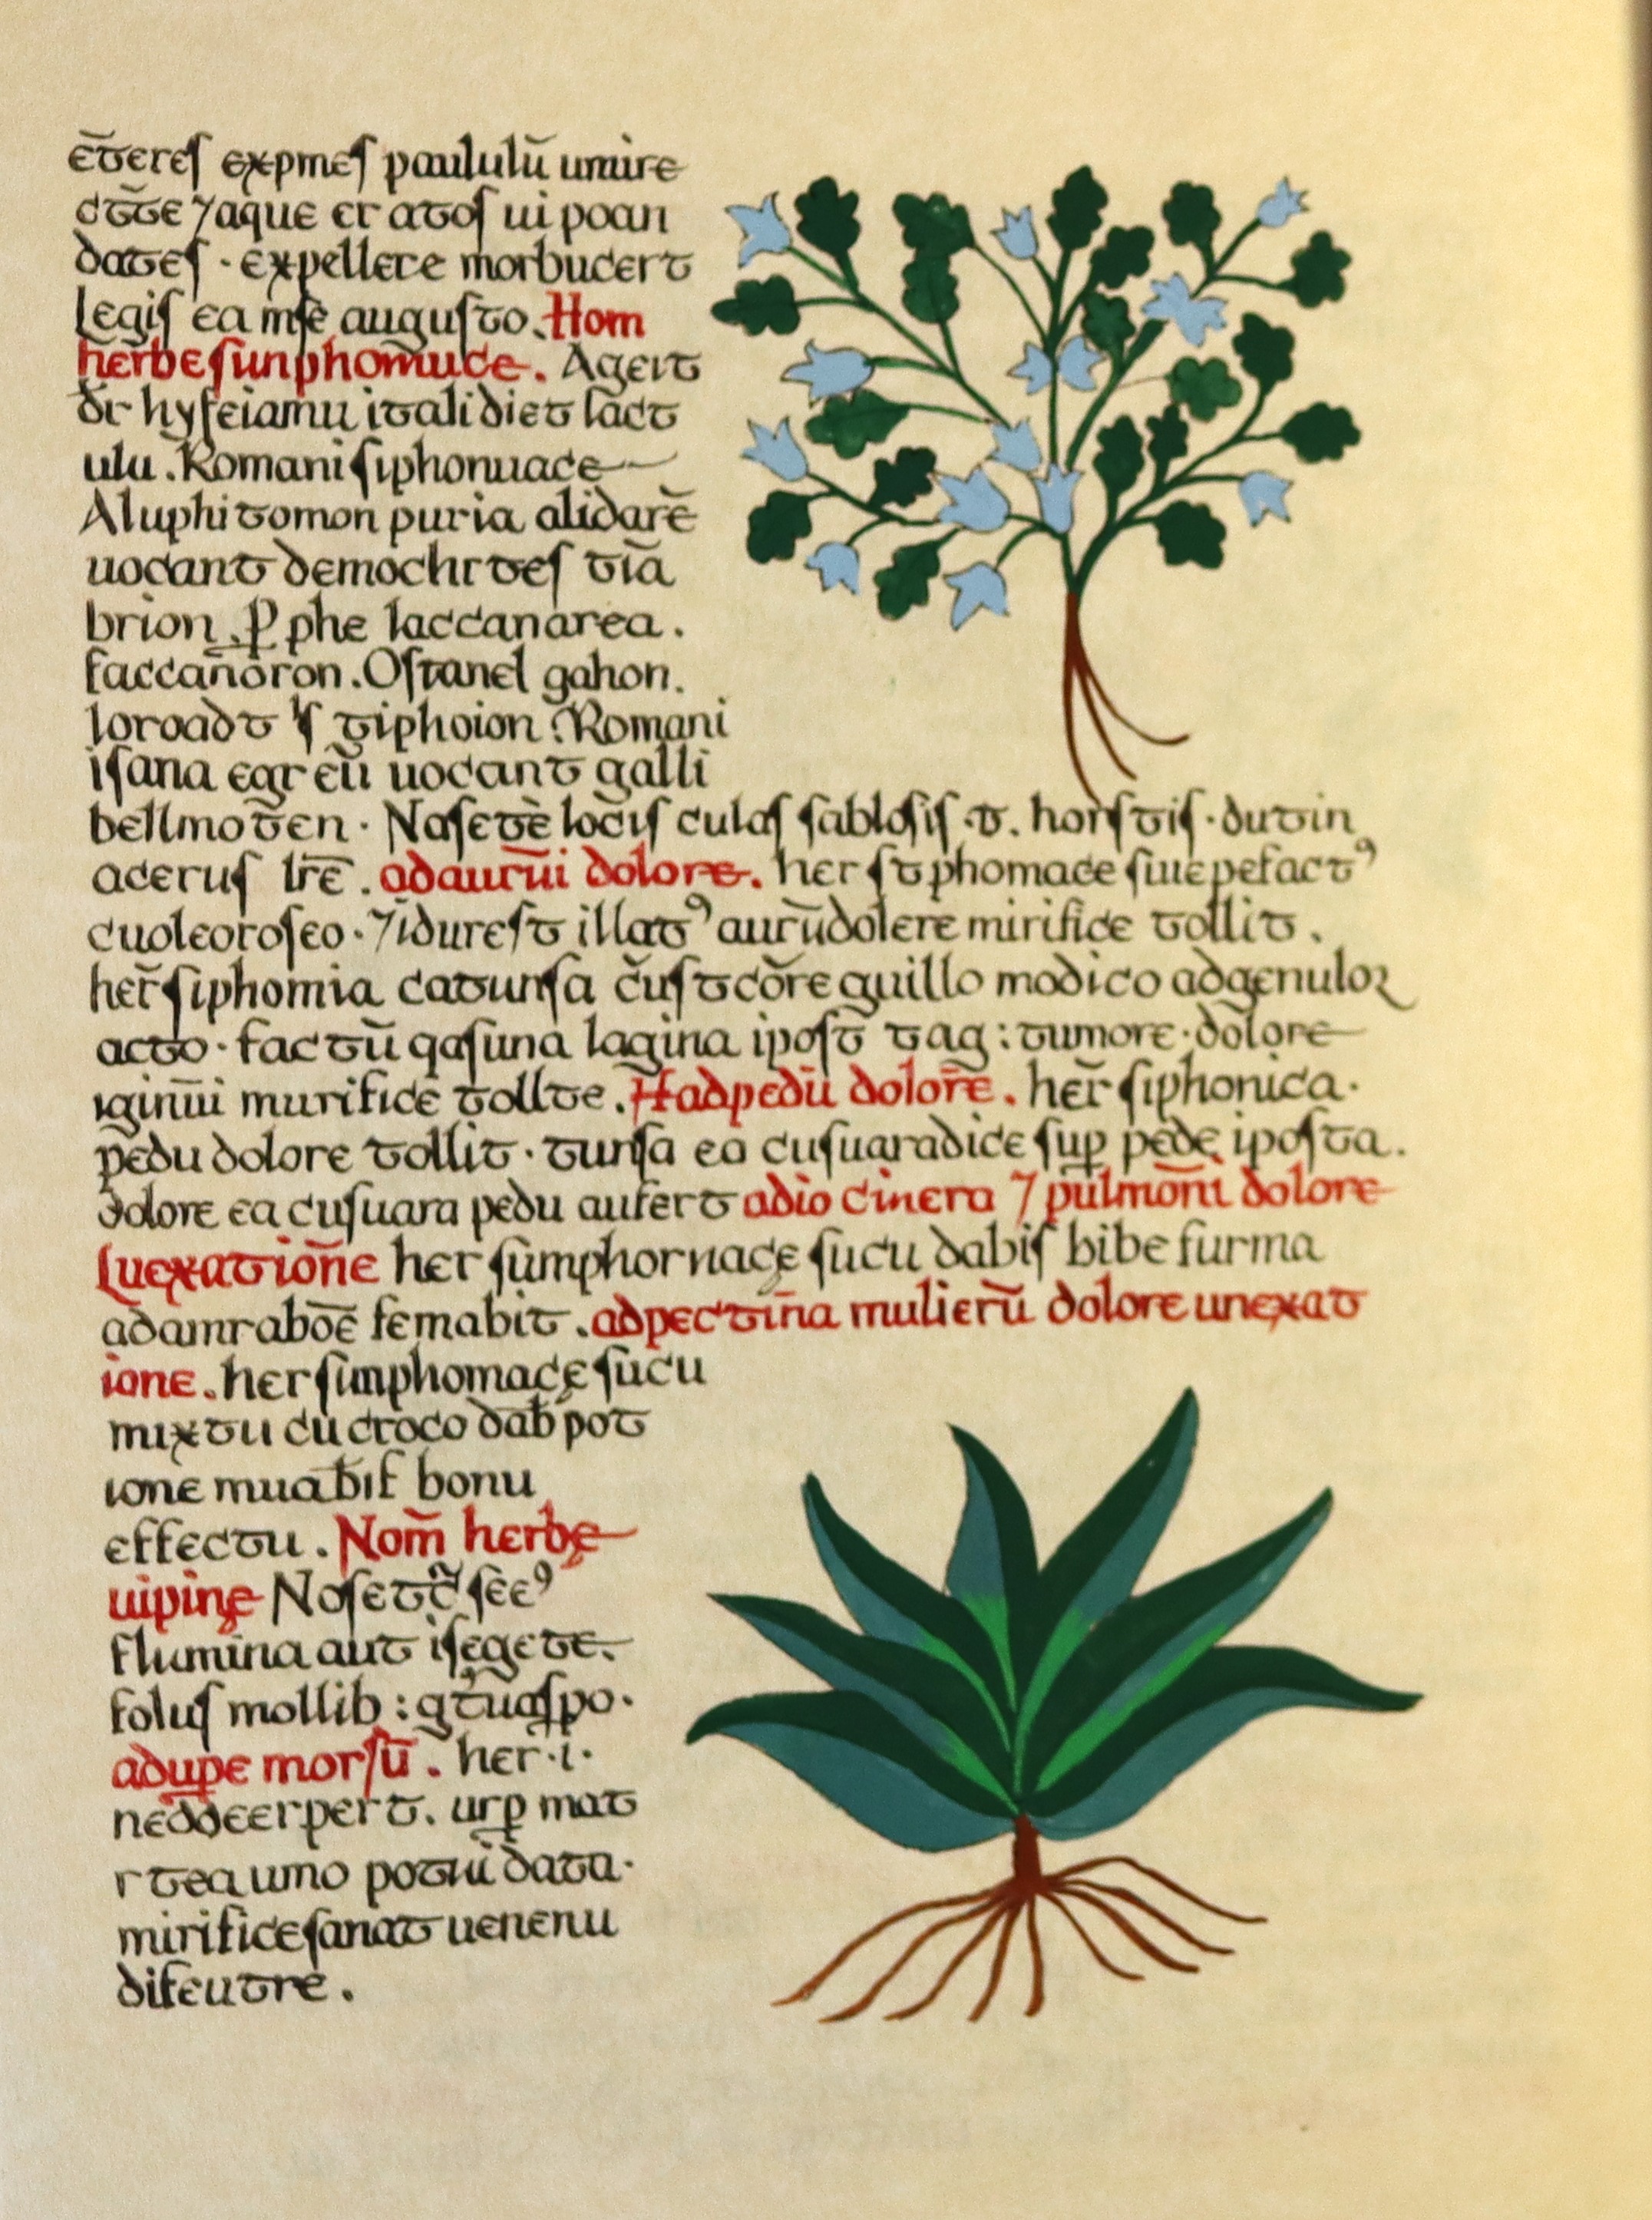 ēteres expmes paululū umire
cēte ⁊aque er atos ui poan
dates · expellere morbucert
Legis ea mse augusto. Hom
herbesunphomuce. Agert
dr hyseiamu itali diet lact
ulu. Romani siphonuace
Aluphitomon puria alidarē
uocant demochr tes tiā
brion. ꝑ phe laccanarea.
faccanoron. Ostanel gahon.
loroadt ƚs tiphoion. Romani
isana egr eū uocant galli
bellmoten · Nasete locis culas sablosis .t. horstis · dutin
acerus lrē. adaurūi dolore. her st phomace siuepefactꝰ
cuoleoroseo · ⁊idurest illatꝰ aurūdolere mirifice tollit.
her̄ siphomia catunsa c̄ust cōre guillo modico adgenuloꝝ
acto · factū qasuna lagina ipost̄ tag : tumore · dolore
iginūi murifice tollte. Hadpedū dolore. her̄ siphonica ·
pedu dolore tollit · tunsa ea cusuaradice suꝑ pede iposta.
dolore ea cusuara pedu aufert adio cinera ⁊ pulmoni dolore
Luexatiōne her sumphornace sucu dabis bibe furma
adamrabōe femabit. adpectina mulierū dolore unexat
ione. her simphomace sucu
mixtu cu croco dab pot
ione muabit bonu
effectu. Nom̄ herbę
uipinę Nasetc̄ seeꝰ
flumina aut isegete.
folus mollib : gtuaspo.
adupe morsū. her · i ·
neddeerpert. urꝑ mat
rtea umo potui data ·
mirifice sanat uenenu
difeutre.